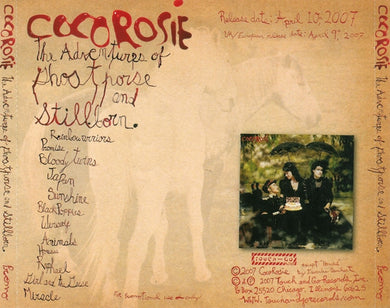 COCOROSIE
The Adventures of
Ghosthorse
and
Stillborn.
Rainbowarriors
Promise
Bloody twins
Japan
Sunshine
Black Poppies
Werewolf
Animals
Houses
Raphael
Girl and the Geese
Miracle
Release date: April 10, 2007
UK/European release date: April 9, 2007
COCOROSIE
TOUCH AND GO
except "Houses"
©2007 CocoRosie
©℗ 2007 Touch and Go Records, Inc.
P.O. Box 25520 Chicago, Illinois 60625
www.Touchandgorecords.com
For promotional use only!
COCOROSIE The Adventures of Ghosthorse and Stillborn.